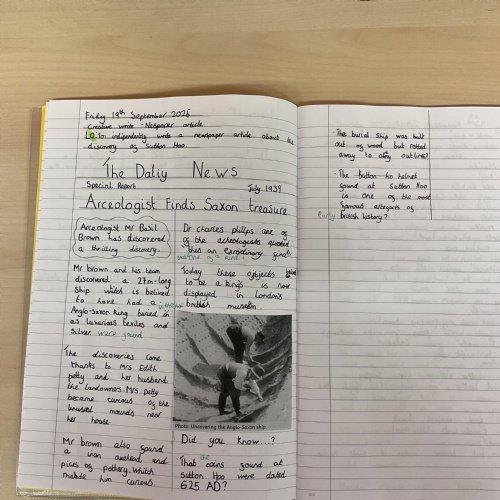 Friday 19th September 2025
Creative write - Nespaper article
LO: To indipendently write a newspaper article about the
discovery og Sutton Hoo.
The Daliy News
Special Report
July 1939
Arceologist Finds Saxon treasure
Arceologist Mr Basil
Brown has discovered
a thrilling discovery.
Mr brown and his team
discovered a 27m-long
Ship witch is belived
to have had a
Anglo-Saxon King buried in
as luxurious textiles and
silver. were found
The discoveries came
thanks to Mrs Edith
petty and her husband
the landowners. Mrs petty
became curious og the
unusual mounds near
her house.
Mr brown also gound
a iron axehead and
pices og pottery. Whitch
makde him curious.
Dr charles phillps one og
og the acheologists quoted
this an exrordinary gind
one og a kind!
Today these offjects
to be a king's is now
displayed in London's
british museum.
Photo: Uncovering the Anglo-Saxon ship
Did you know...?
the
That coins gound at
Sutton Hoo were dated
625 AD?
The burial ship was built
out og wood but rotted
away to only outlines?
The sutton ho helmet
gound at Sutton Hoo
is one og the most
gamous artegacts og
Early british history?